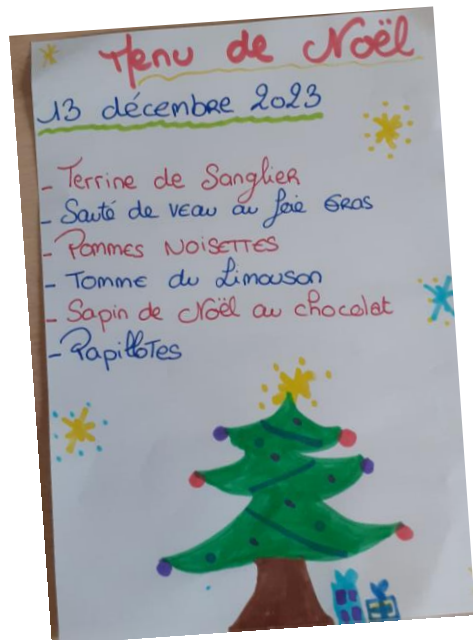 Menu de Noël
13 décembre 2023
- Terrine de Sanglier
- Sauté de veau au foie gras
- Pommes NOISETTES
- Tomme du Limouson
- Sapin de Noël au chocolat
- Papillotes